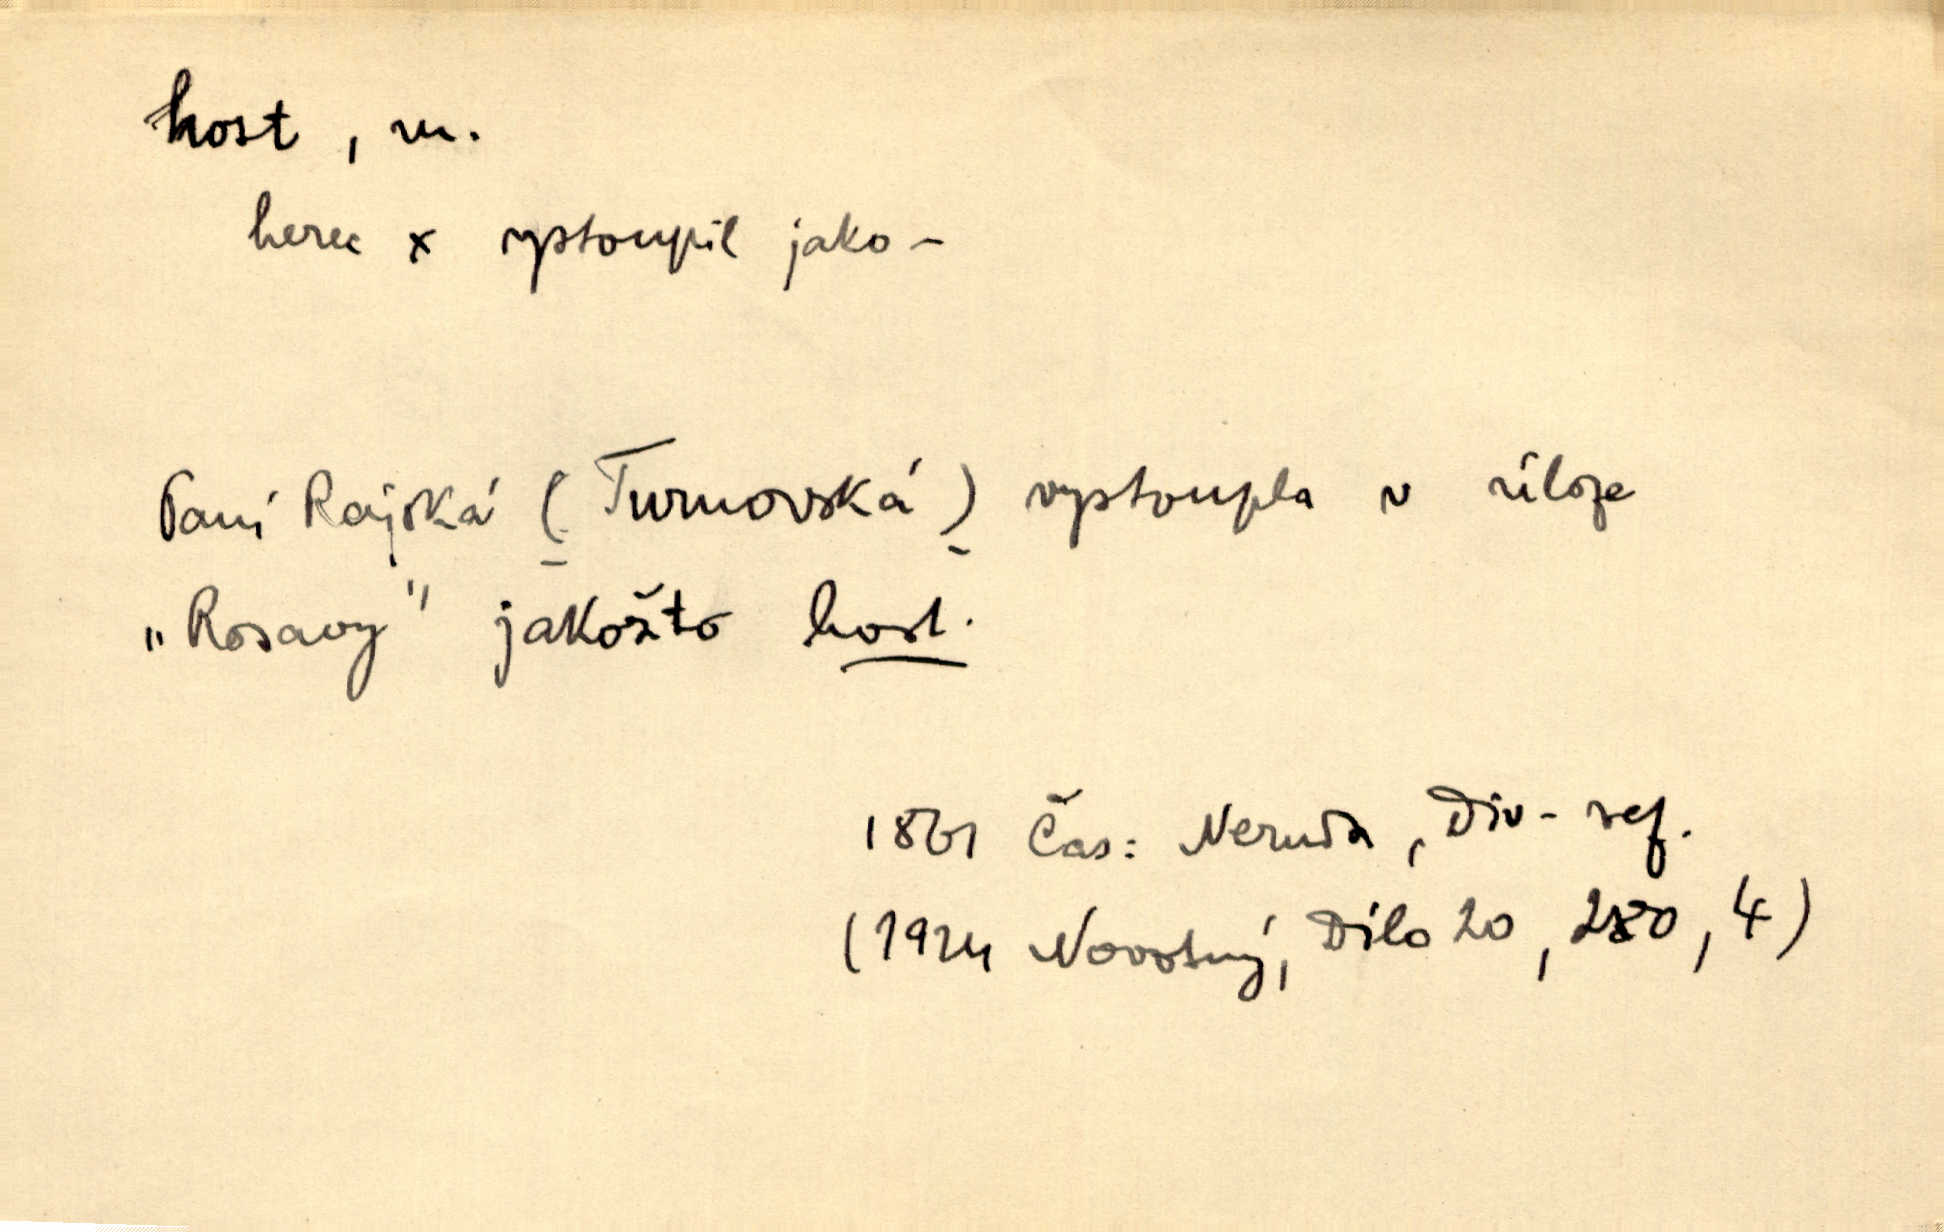 host, m.
herec x vystoupil jako –
Paní Rajská (Turnovská) vystoupla v úloze
„Rosavy" jakožto host.
1861 Čas: Neruda, Div. ref.
(1924 Novotný, Dílo 20, 280, 4)